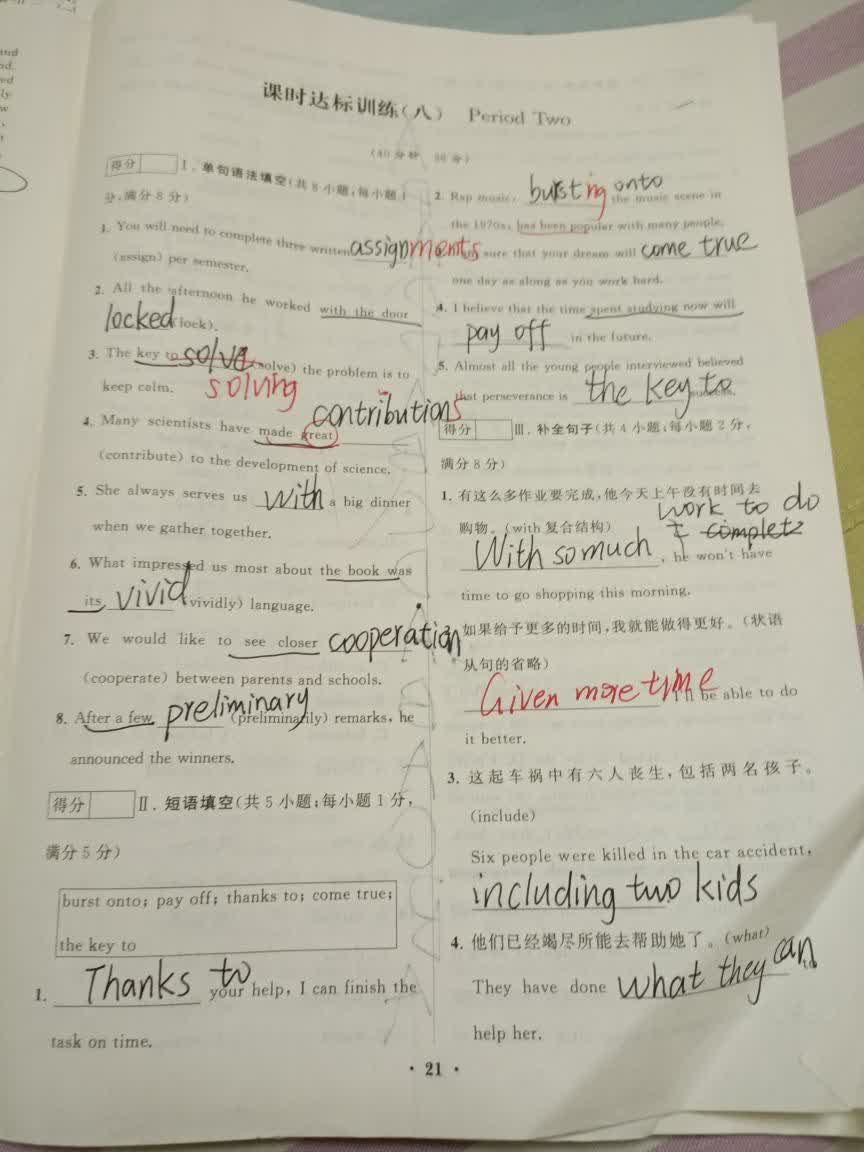 课时达标训练(八) Period Two
(40分钟 50分)
得分 Ⅰ.单句语法填空(共8小题;每小题1
分,满分8分)
1. You will need to complete three written assignments
(assign) per semester.
2. All the afternoon he worked with the door
locked (lock).
3. The key to solve (solve) the problem is to
keep calm. solving
4. Many scientists have made great contributions
(contribute) to the development of science.
5. She always serves us with a big dinner
when we gather together.
6. What impressed us most about the book was
its vivid (vividly) language.
7. We would like to see closer cooperation
(cooperate) between parents and schools.
8. After a few preliminary (preliminarily) remarks, he
announced the winners.
得分 Ⅱ.短语填空(共5小题;每小题1分,
满分5分)
burst onto; pay off; thanks to; come true;
the key to
1. Thanks to your help, I can finish the
task on time.
2. Rap music, bursting onto the music scene in
the 1970s, has been popular with many people.
sure that your dream will come true
one day as along as you work hard.
4. I believe that the time spent studying now will
pay off in the future.
5. Almost all the young people interviewed believed
that perseverance is the key to
得分 Ⅲ.补全句子(共4小题;每小题2分,
满分8分)
1. 有这么多作业要完成,他今天上午没有时间去
购物。(with复合结构) work to do
With so much complete, he won't have
time to go shopping this morning.
如果给予更多的时间,我就能做得更好。(状语
从句的省略)
Given more time I'll be able to do
it better.
3. 这起车祸中有六人丧生,包括两名孩子。
(include)
Six people were killed in the car accident,
including two kids
4. 他们已经竭尽所能去帮助她了。(what)
They have done what they can to
help her.
· 21 ·